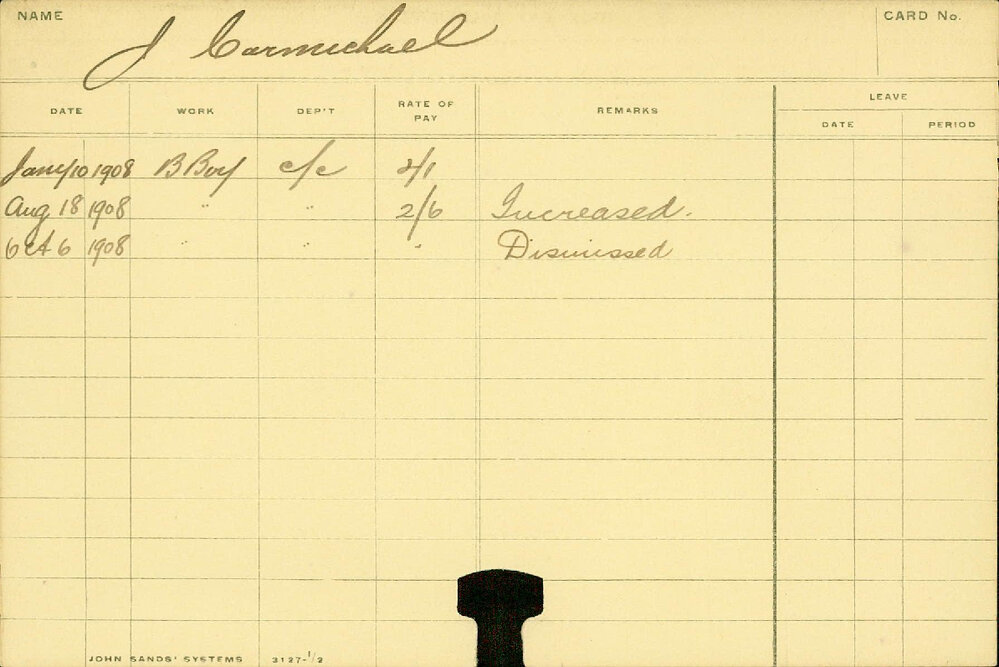 NAME J Carmichael CARD No.
DATE WORK DEP'T RATE OF PAY REMARKS LEAVE
DATE PERIOD
Jany 10 1908 B Boy c/c 2/1
Aug 18 1908 " " 2/6 Increased.
Oct 6 1908 " " " Dismissed
JOHN SANDS' SYSTEMS 3127-1/2